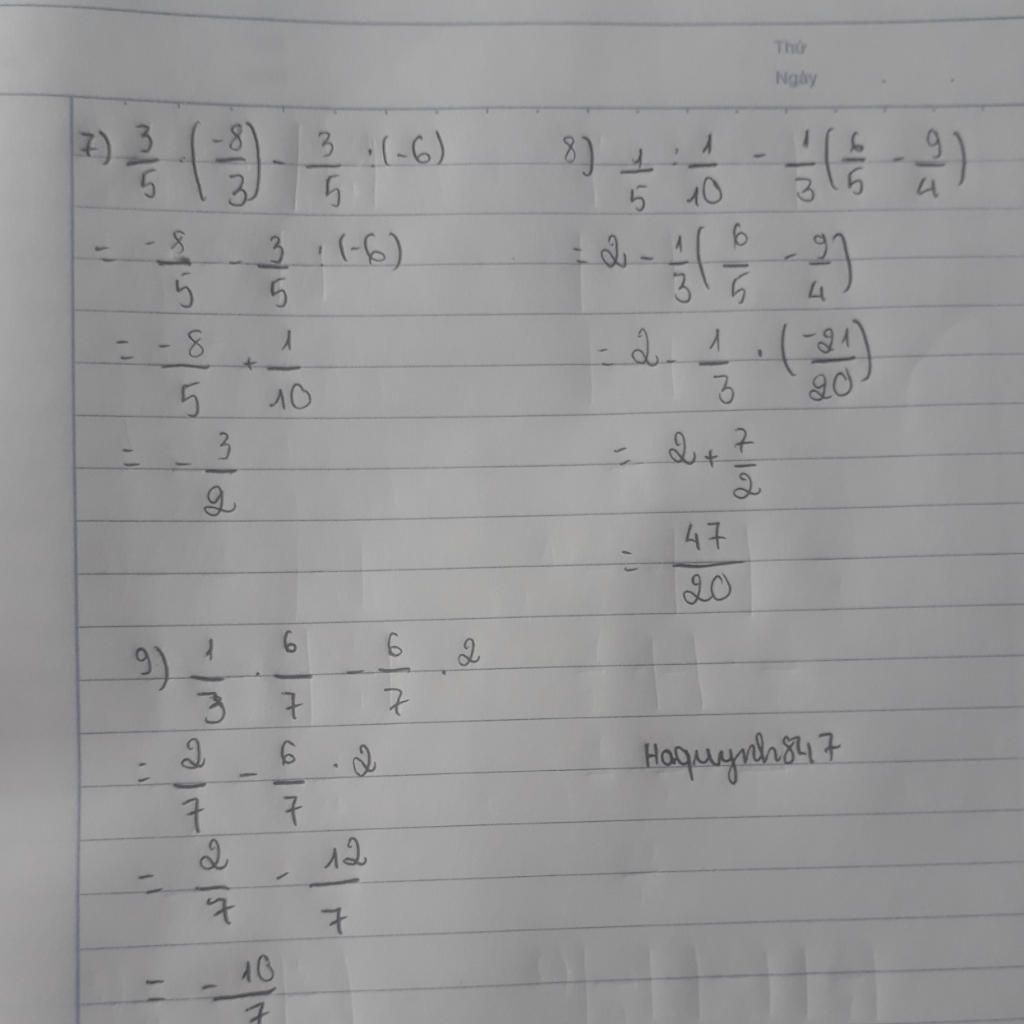 Thứ
Ngày
7) 3/5 · (-8/3) - 3/5 : (-6)
= -8/5 - 3/5 : (-6)
= -8/5 + 1/10
= - 3/2
8) 1/5 : 1/10 - 1/3 (6/5 - 9/4)
= 2 - 1/3 (6/5 - 9/4)
= 2 - 1/3 · (-21/20)
= 2 + 7/2
= 47/20
9) 1/3 · 6/7 - 6/7 · 2
= 2/7 - 6/7 · 2
= 2/7 - 12/7
= - 10/7
Haquynh847